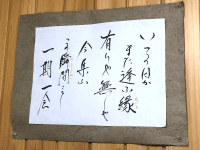 いつの日か
また逢ふ縁
有りや無しや
今集ふ
この瞬間こそ
一期一会